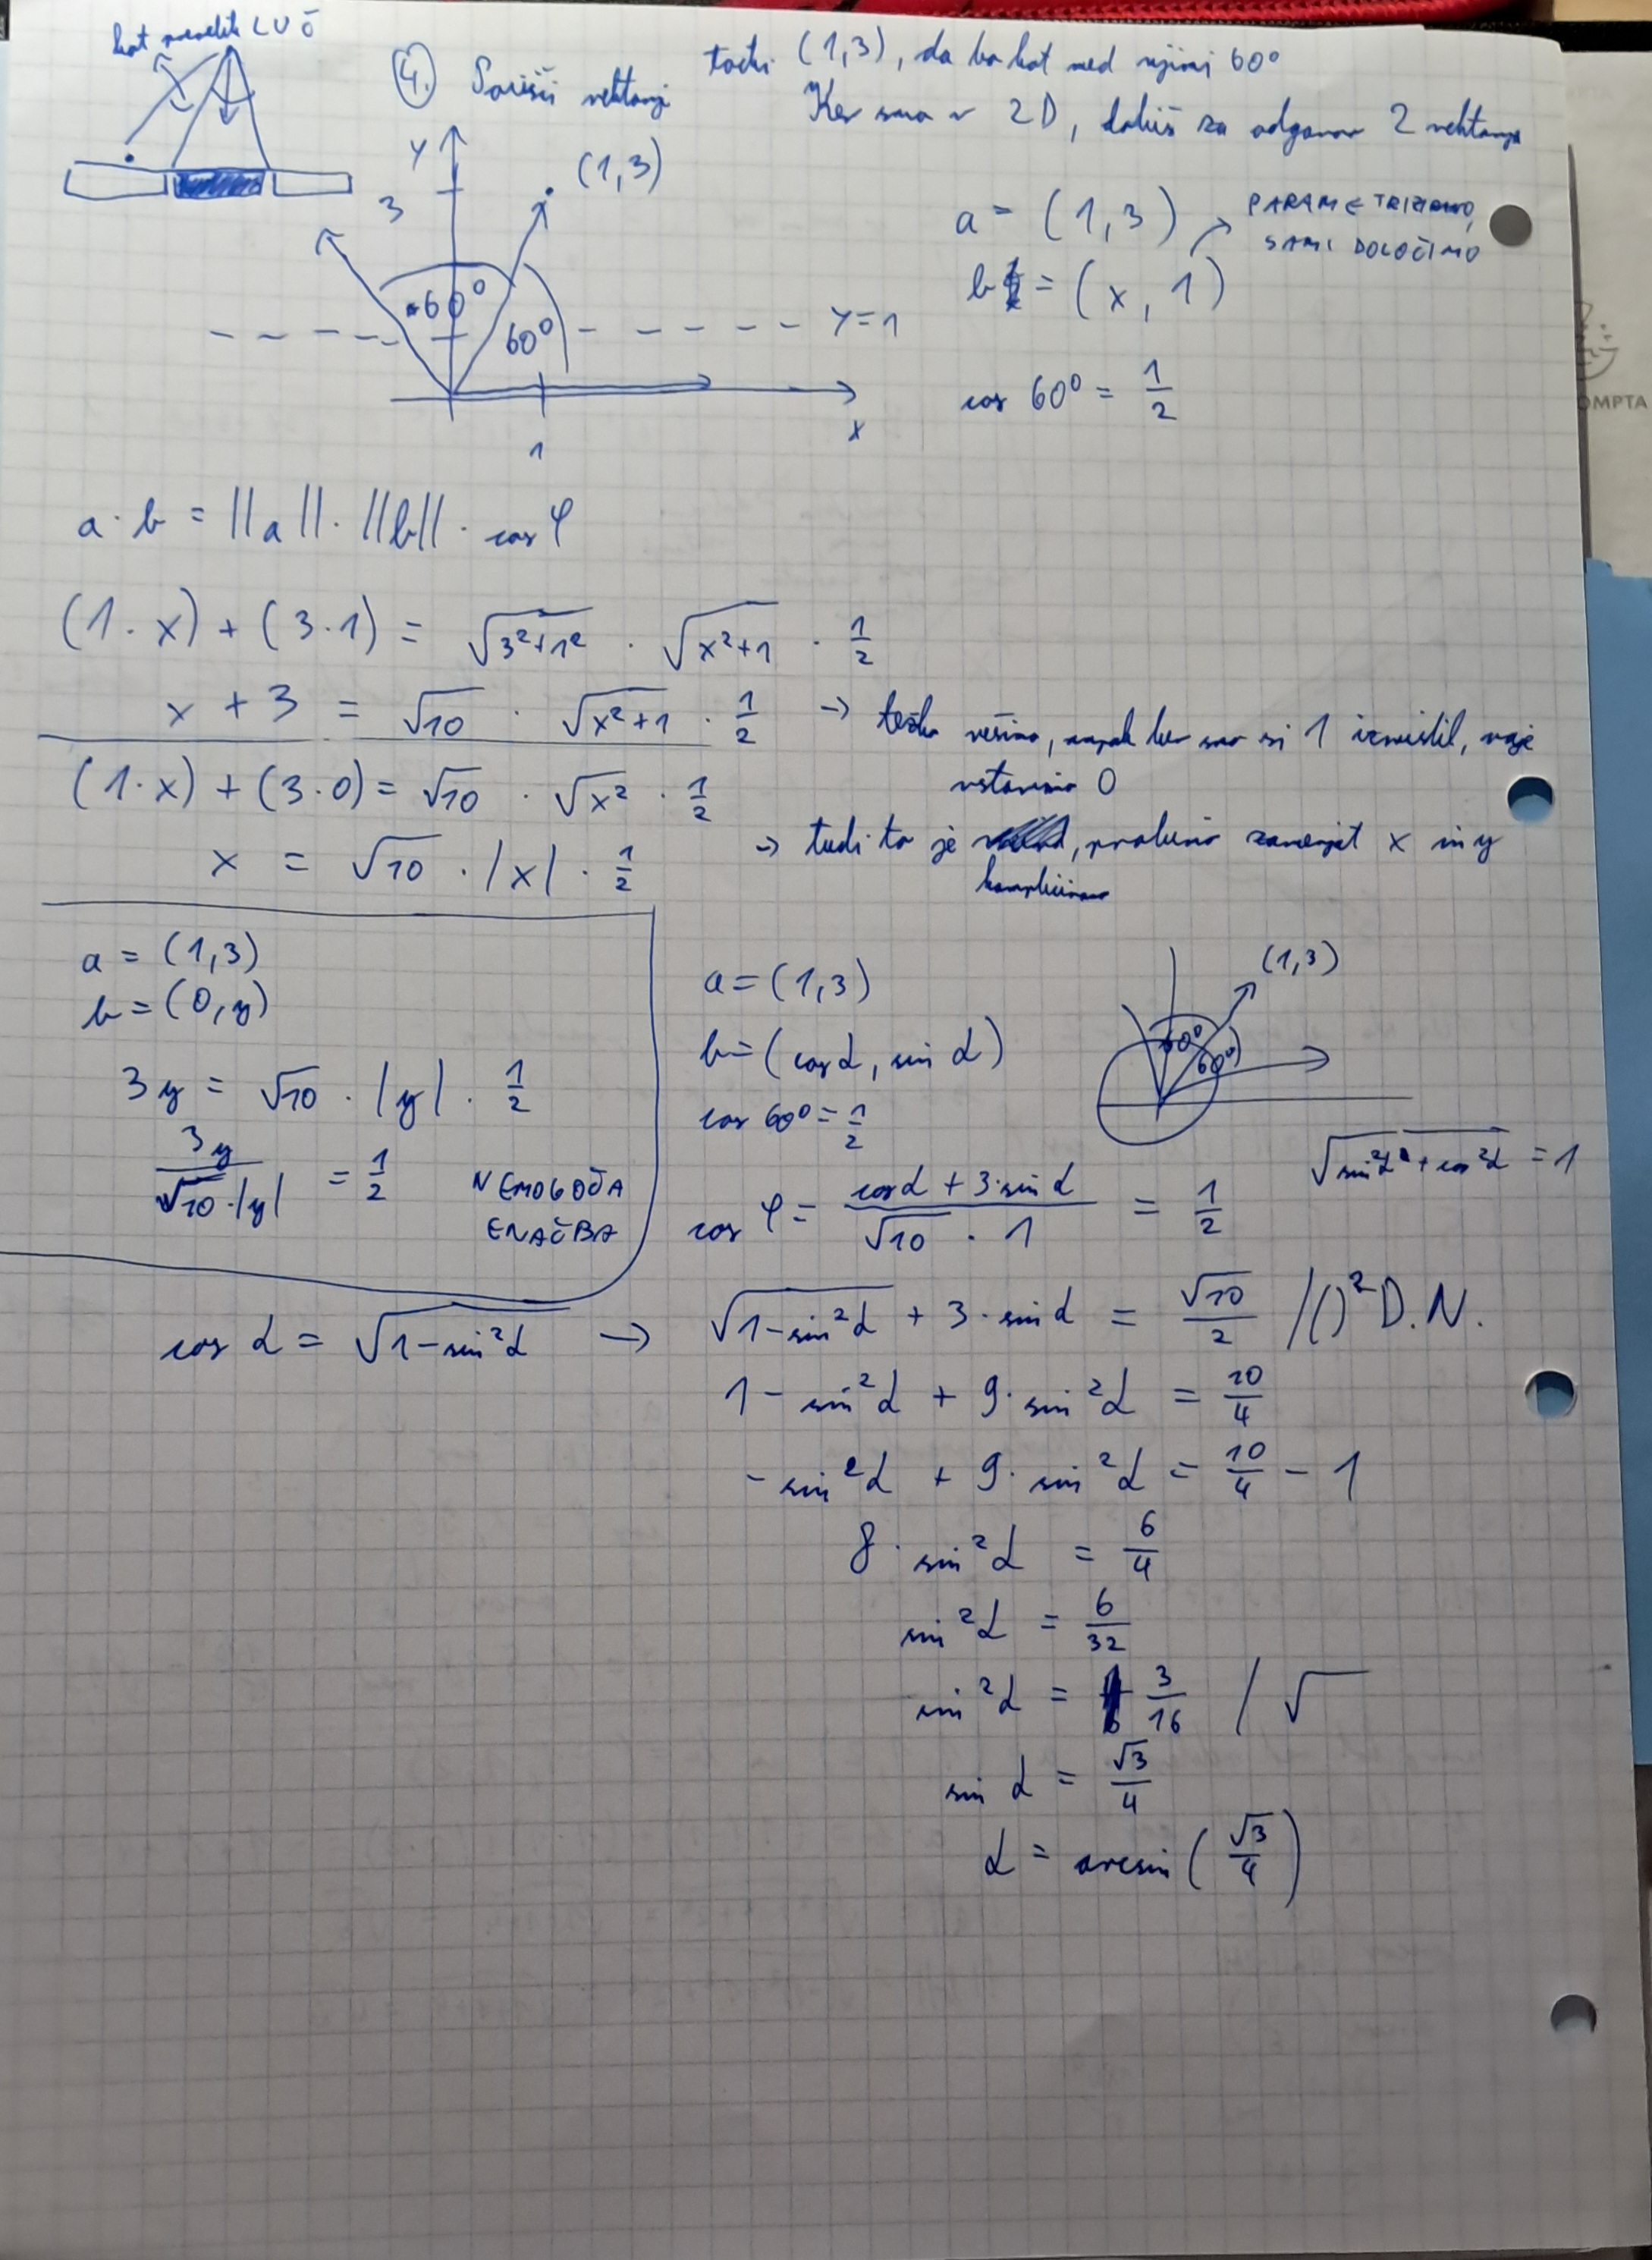 kot LUČ
4. Poišči vektorji točki (1,3), da bo kot med njimi 60°
Ker smo v 2D, dobiš za odgovor 2 vektorja
Y
3
(1,3)
60°
60°
Y=1
X
1
a = (1,3)
PARAMETRIZIRAMO,
SAMI DOLOČIMO
b = (x, 1)
cos 60° = 1/2
OMPTA
a · b = ||a|| · ||b|| · cos φ
(1·x) + (3·1) = √(3²+1²) · √(x²+1) · 1/2
x + 3 = √10 · √(x²+1) · 1/2 → težko rešimo, ampak ker smo si 1 izmislil, raje
vstavimo 0
(1·x) + (3·0) = √10 · √x² · 1/2
x = √10 · |x| · 1/2 → tudi to je komplicirano, probamo zamenjat x in y
a = (1,3)
b = (0,y)
3y = √10 · |y| · 1/2
3y/(√10·|y|) = 1/2
NEMOGOČA
ENAČBA
a = (1,3)
b = (cos α, sin α)
cos 60° = 1/2
(1,3)
60°
60°
√(sin²α + cos²α) = 1
cos φ = (cos α + 3·sin α)/(√10 · 1) = 1/2
cos α = √(1-sin²α) → √(1-sin²α) + 3·sin α = √10/2 /()² D.N.
1 - sin²α + 9·sin²α = 10/4
- sin²α + 9·sin²α = 10/4 - 1
8·sin²α = 6/4
sin²α = 6/32
sin²α = 3/16 / √
sin α = √3/4
α = arcsin(√3/4)